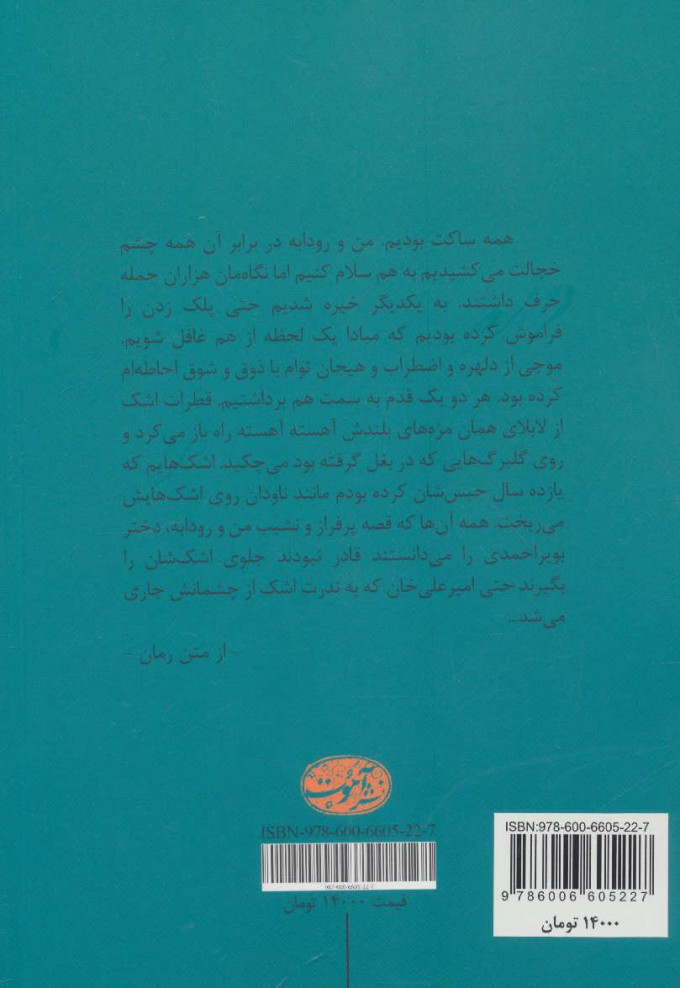 همه ساکت بودیم. من و رودابه در برابر آن همه چشم
خجالت می‌کشیدیم به هم سلام کنیم اما نگاه‌مان هزاران جمله
حرف داشتند. به یکدیگر خیره شدیم حتی پلک زدن را
فراموش کرده بودیم که مبادا یک لحظه از هم غافل شویم.
موجی از دلهره و اضطراب و هیجان توام با ذوق و شوق احاطه‌ام
کرده بود. هر دو یک قدم به سمت هم برداشتیم. قطرات اشک
از لابلای همان مژه‌های بلندش آهسته آهسته راه باز می‌کرد و
روی گلبرگ‌هایی که در بغل گرفته بود می‌چکید. اشک‌هایم که
یازده سال حبس‌شان کرده بودم مانند ناودان روی اشک‌هایش
می‌ریخت. همه آن‌ها که قصه پرفراز و نشیب من و رودابه، دختر
بویراحمدی را می‌دانستند قادر نبودند جلوی اشک‌شان را
بگیرند حتی امیرعلی‌خان که به ندرت اشک از چشمانش جاری
می‌شد...
- از متن رمان -
نشر آموت
ISBN-978-600-6605-22-7
قیمت ۱۴۰۰۰ تومان
ISBN:978-600-6605-22-7
9 786006 605227
۱۴۰۰۰ تومان